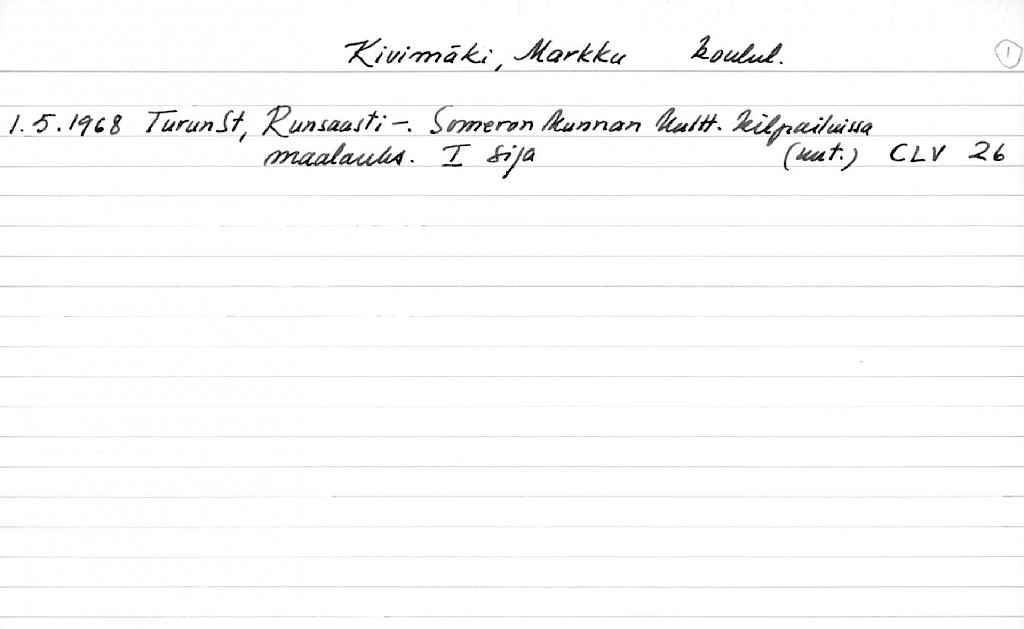 Kivimäki, Markku koulul. 1
1.5.1968 TurunSt, Runsaasti -. Someron kunnan kultt. kilpailuissa
maalauks. I sija (uut.) CLV 26